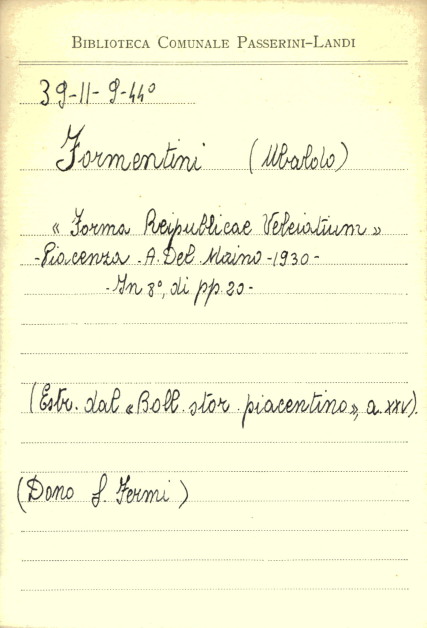 BIBLIOTECA COMUNALE PASSERINI-LANDI
39-11-9-44º
Formentini (Ubaldo)
« Forma Reipublicae Veleiatium »
-Piacenza - A. Del Maino - 1930 -
- In 8º, di pp. 20 -
(Estr. dal «Boll. stor. piacentino», a. XXV).
(Dono S. Fermi)